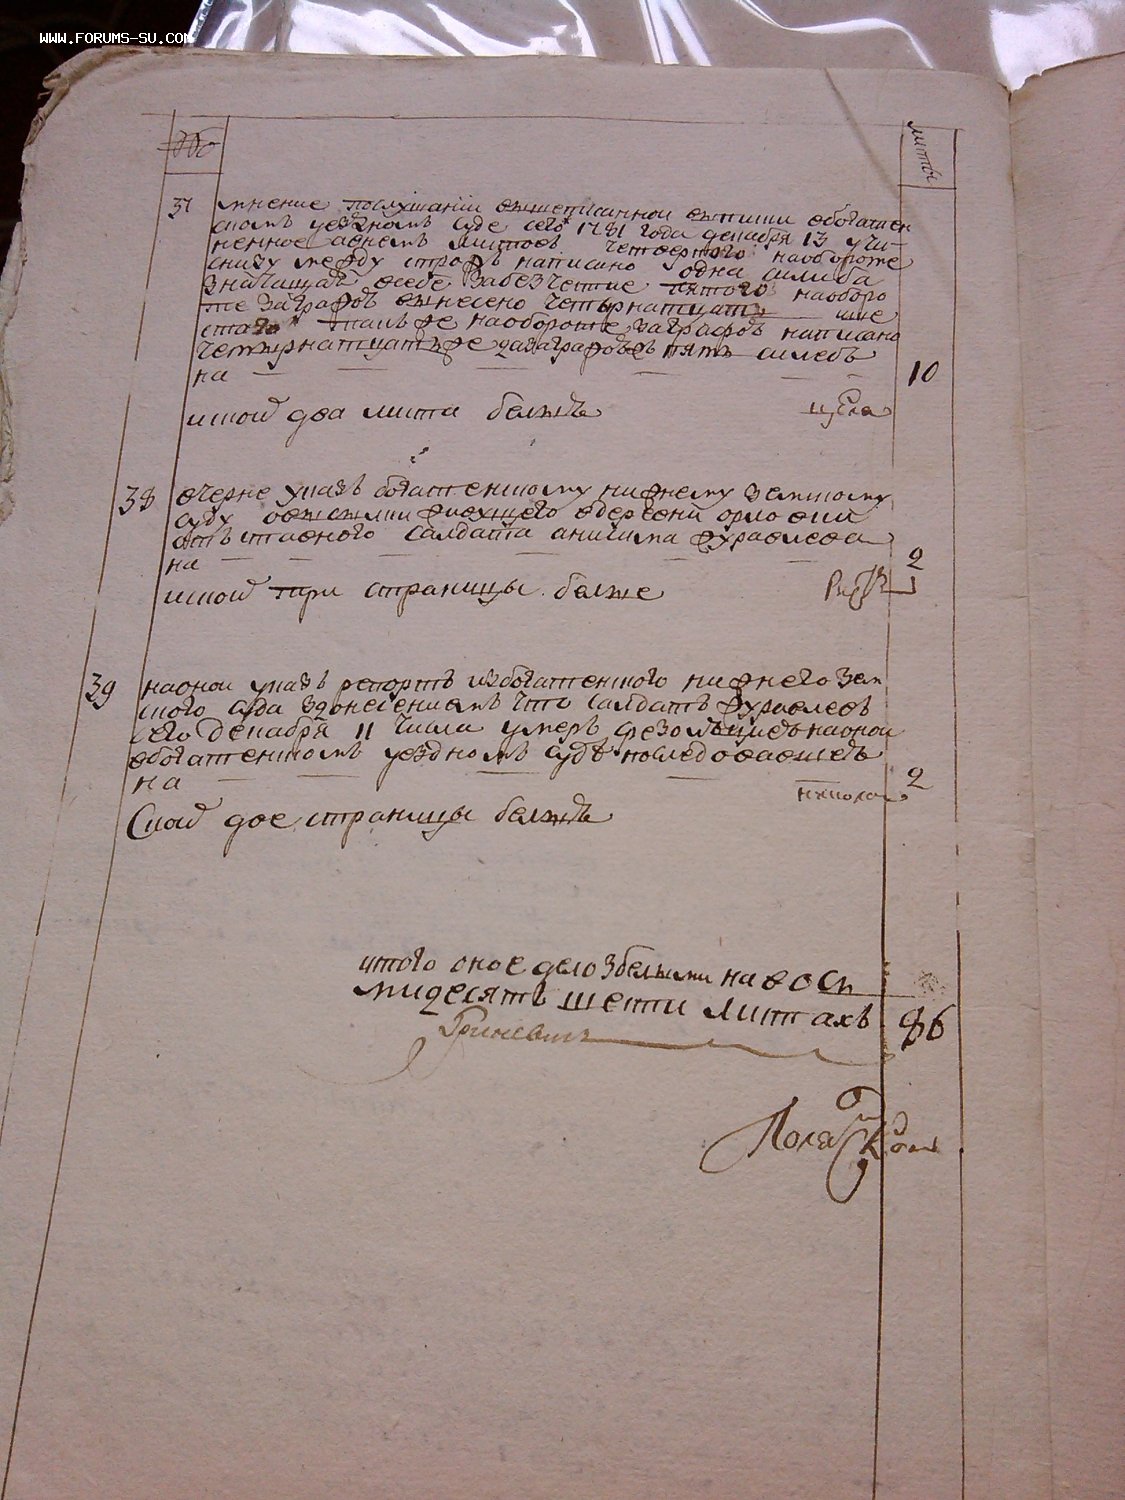 WWW.FORUMS-SU.COM
листы
37 мнение послушании вышеписанной выписки вбогатен
скомъ уездномъ суде сего 1781 года декабря 13 учи-
ненное вчемъ листовъ четвертого наобороте
снизу между строкъ написано одна
значащая всебе пятого наоборо
те заграфов вынесено четырнатцать ше
стаго также наобороте заграфовъ написано
четырнатцать же заграфовъ пять
на 10
иской два листа белыхъ
38 вчерне указъ богатенскому нижнему земскому
суду овысылки живущего вдеревни орловки
отъставного салдата анисима журавлева
на 2
иской три страницы белые
39 наоной указъ репортъ избогатенского нижнего зем
ского суда здонесениемъ что салдатъ журавлевъ
сего декабря 11 числа умеръ срезолюциею наоной
вбогатенскомъ уездномъ суде последовавшею
на 2
Ской две страницы белыхъ
итого оное дело збелыми на восм
мидесять шести листахъ 86